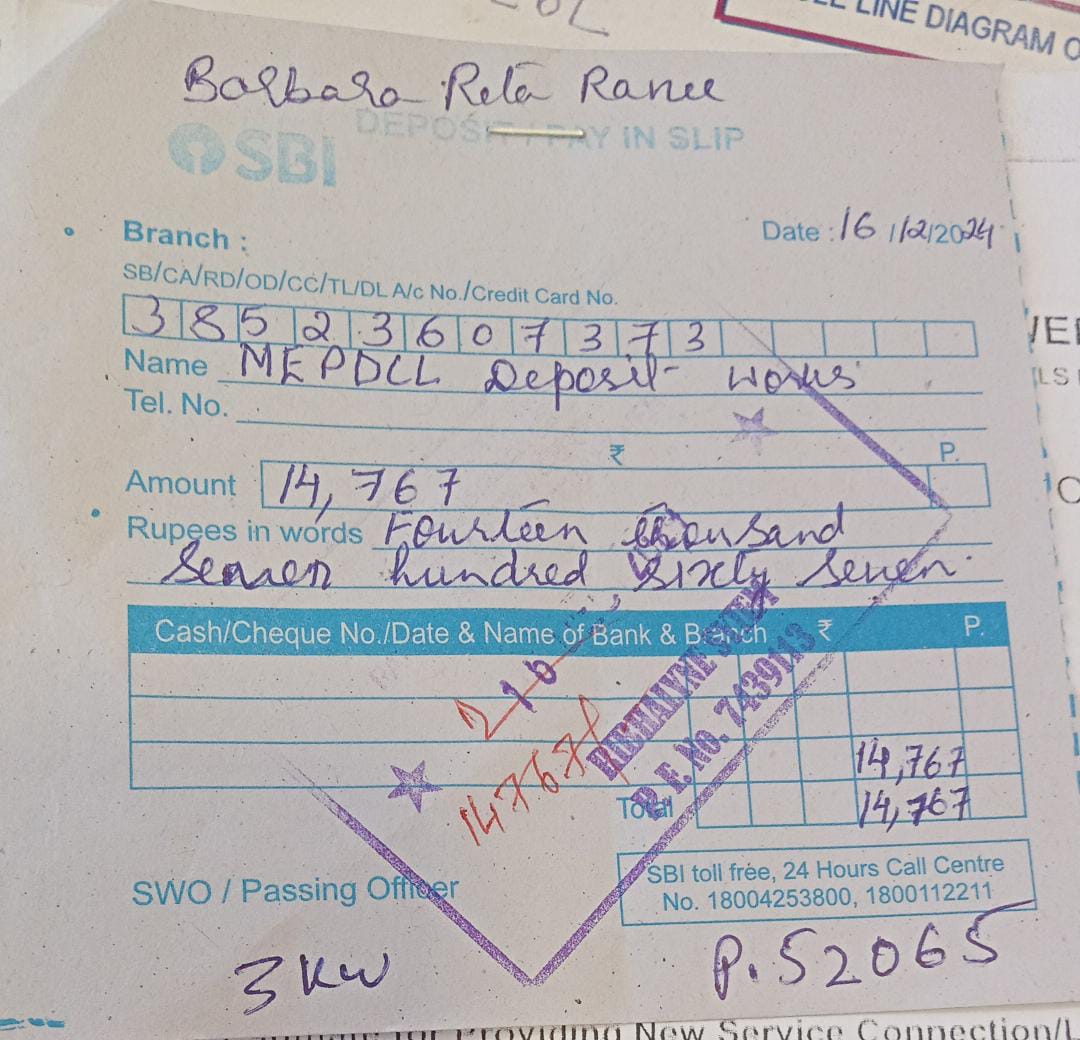 LINE DIAGRAM O
Barbara Rita Ranee
DEPOSIT / PAY IN SLIP
SBI
Branch :
Date : 16/12/2024
SB/CA/RD/OD/CC/TL/DL A/c No./Credit Card No.
38523607373
Name MEPDCL Deposit works
Tel. No.
₹ P.
Amount 14,767
Rupees in words Fourteen thousand
Seven hundred Sixty Seven.
Cash/Cheque No./Date & Name of Bank & Branch ₹ P.
14767/
P.F. No. 7439113
14,767
Total 14,767
SWO / Passing Officer
SBI toll free, 24 Hours Call Centre
No. 18004253800, 1800112211
3 KW
P.52065
for Providing New Service Connection/L